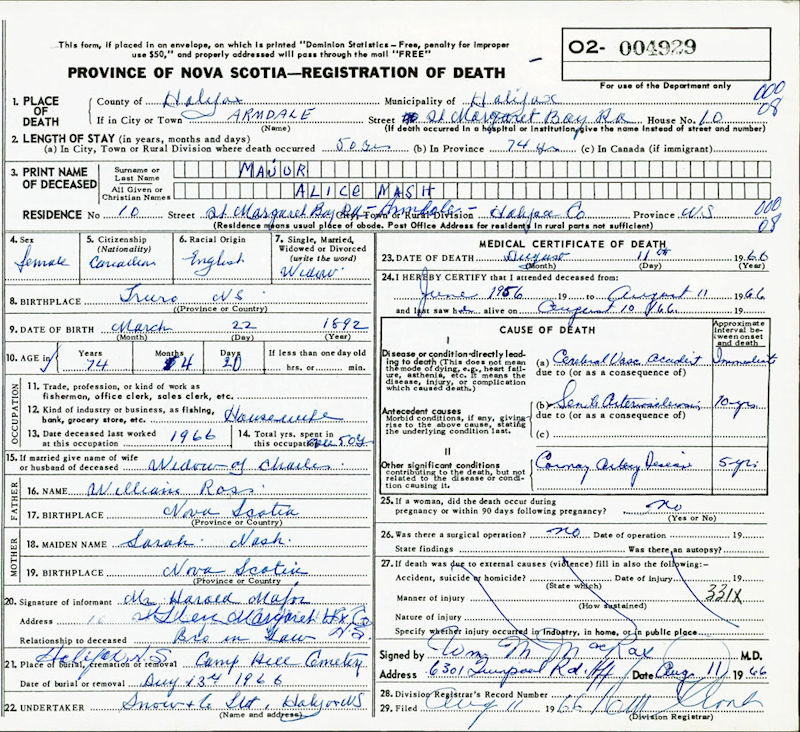 This form, if placed in an envelope, on which is printed "Dominion Statistics – Free, penalty for improper
use $50," and properly addressed will pass through the mail "FREE"
O2- 004929
PROVINCE OF NOVA SCOTIA—REGISTRATION OF DEATH
For use of the Department only
000
08
1. PLACE OF DEATH
County of Halifax Municipality of Halifax
If in City or Town ARMDALE Street St. Margaret Bay Rd House No. 10
(Name) (If death occurred in a hospital or institution, give the name instead of street and number)
2. LENGTH OF STAY (in years, months and days)
(a) In City, Town or Rural Division where death occurred 50 yrs (b) In Province 74 yrs (c) In Canada (if immigrant)
3. PRINT NAME OF DECEASED
Surname or Last Name MAJOR
All Given or Christian Names ALICE MASH
RESIDENCE No 10 Street St Margaret Bay Rd – Armdale – City, Town or Rural Division Halifax Co Province N.S
000
08
(Residence means usual place of abode. Post Office Address for residents in rural parts not sufficient)
4. Sex
female
5. Citizenship
(Nationality)
Canadian
6. Racial Origin
English
7. Single, Married, Widowed or Divorced
(write the word)
Widow
8. BIRTHPLACE Truro N S
(Province or Country)
9. DATE OF BIRTH March 22 1892
(Month) (Day) (Year)
10. AGE in
Years 74
Months 4
Days 20
If less than one day old
hrs. or min.
OCCUPATION
11. Trade, profession, or kind of work as
fisherman, office clerk, sales clerk, etc.
12. Kind of industry or business, as fishing,
bank, grocery store, etc. Housewife
13. Date deceased last worked
at this occupation 1966
14. Total yrs. spent in
this occupation 50 yrs
15. If married give name of wife
or husband of deceased Widow of Charles
FATHER
16. NAME William Ross
17. BIRTHPLACE Nova Scotia
(Province or Country)
MOTHER
18. MAIDEN NAME Sarah Nash
19. BIRTHPLACE Nova Scotia
(Province or Country)
20. Signature of informant Mr Harold Major
Address 10 St Margaret Hx Co
N.S
Relationship to deceased Bro in Law
Halifax N.S
21. Place of burial, cremation or removal Camp Hill Cemetry
Date of burial or removal Aug 13th 1966
22. UNDERTAKER Snow & Co Ltd, Halifax NS
(Name and address)
MEDICAL CERTIFICATE OF DEATH
23. DATE OF DEATH August 11th 1966
(Month) (Day)
24. I HEREBY CERTIFY that I attended deceased from:
June 1956 19 to August 11 1966
and last saw her alive on August 10 1966.
CAUSE OF DEATH
Approximate interval between onset and death
I
Disease or condition directly leading to death (This does not mean the mode of dying, e.g., heart failure, asthenia, etc. It means the disease, injury, or complication which caused death.)
(a) Cerebral Vasc Accident Immediate
due to (or as a consequence of)
Antecedent causes
Morbid conditions, if any, giving rise to the above cause, stating the underlying condition last.
(b) Senile Arteriosclerosis 10 yrs
due to (or as a consequence of)
(c)
II
Other significant conditions
contributing to the death, but not related to the disease or condition causing it.
Coronary Artery Disease 5 yrs
25. If a woman, did the death occur during
pregnancy or within 90 days following pregnancy? no
(Yes or No)
26. Was there a surgical operation? no Date of operation 19
State findings Was there an autopsy?
27. If death was due to external causes (violence) fill in also the following:–
Accident, suicide or homicide? Date of injury 19
(State which)
Manner of injury 331X
(How sustained)
Nature of injury
Specify whether injury occurred in Industry, in home, or in public place
Signed by Wm M MacRae M.D.
Address 6301 Liverpool Rd Hfx Date Aug 11 1966
28. Division Registrar's Record Number
29. Filed Aug 11 1966
(Division Registrar)